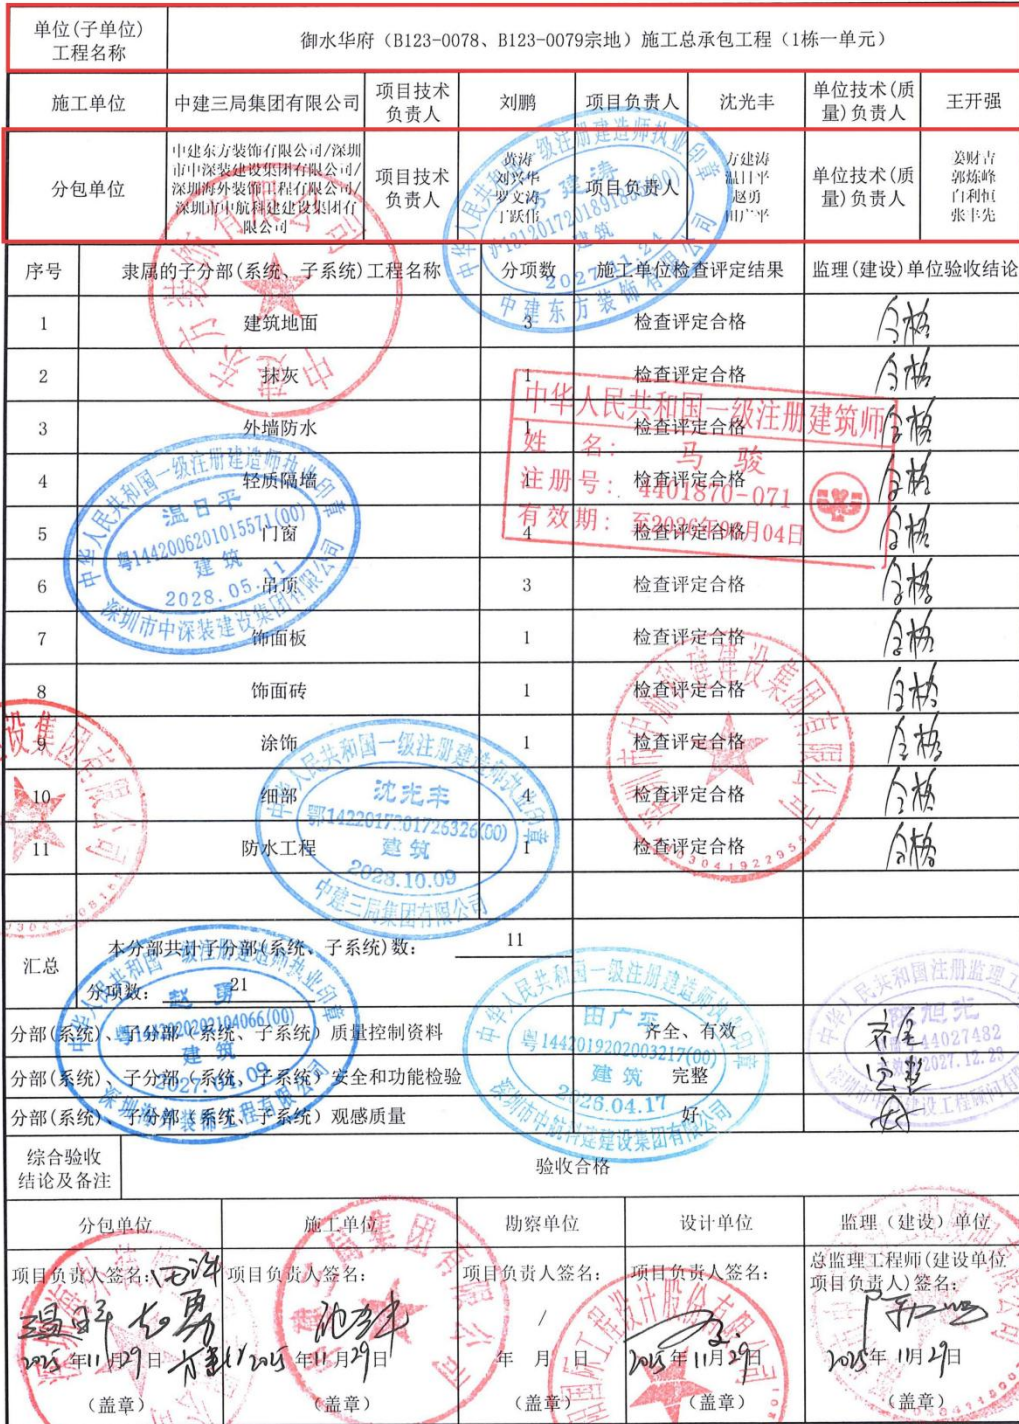 单位(子单位)
工程名称
御水华府（B123-0078、B123-0079宗地）施工总承包工程（1栋一单元）
施工单位
中建三局集团有限公司
项目技术
负责人
刘鹏
项目负责人
沈光丰
单位技术(质
量)负责人
王开强
分包单位
中建东方装饰有限公司/深圳
市中深装建设集团有限公司/
深圳海外装饰工程有限公司/
深圳市中航科建建设集团有
限公司
项目技术
负责人
黄涛
刘兴华
罗文涛
丁跃伟
项目负责人
方建涛
温日平
赵勇
田广平
单位技术(质
量)负责人
姜财吉
郭炼峰
白利恒
张丰先
序号 隶属的子分部(系统、子系统)工程名称 分项数 施工单位检查评定结果 监理(建设)单位验收结论
1 建筑地面 3 检查评定合格 合格
2 抹灰 1 检查评定合格 合格
3 外墙防水 1 检查评定合格 合格
4 轻质隔墙 1 检查评定合格 合格
5 门窗 4 检查评定合格 合格
6 吊顶 3 检查评定合格 合格
7 饰面板 1 检查评定合格 合格
8 饰面砖 1 检查评定合格 合格
9 涂饰 1 检查评定合格 合格
10 细部 4 检查评定合格 合格
11 防水工程 1 检查评定合格 合格
汇总
本分部共计子分部(系统、子系统)数： 11
分项数： 21
分部(系统)、子分部（系统、子系统）质量控制资料 齐全、有效 齐全
分部(系统)、子分部（系统、子系统）安全和功能检验 完整 完整
分部(系统)、子分部（系统、子系统）观感质量 好 好
综合验收
结论及备注
验收合格
分包单位 施工单位 勘察单位 设计单位 监理（建设）单位
项目负责人签名：
温日平 赵勇
2025年11月29日
（盖章）
项目负责人签名：
沈光丰
2025年11月29日
（盖章）
项目负责人签名：
/
年 月 日
（盖章）
项目负责人签名：
2025年11月29日
（盖章）
总监理工程师(建设单位
项目负责人)签名：
2025年11月29日
（盖章）
中华人民共和国一级注册建造师执业印章
方建涛
建筑
2027.01.24
中建东方装饰有限公司
中建东方装饰有限公司
中华人民共和国一级注册建筑师
姓 名： 马 骏
注册号： 4401870-071
有效期：
中华人民共和国一级注册建造师执业印章
温日平
粤1442006201015571(00)
建筑
2028.05.11
深圳市中深装建设集团有限公司
深圳市中航科建建设集团有限公司
中华人民共和国一级注册建造师执业印章
沈光丰
建筑
2028.10.09
中建三局集团有限公司
中华人民共和国一级注册建造师执业印章
赵勇
粤1442020202104066(00)
建筑
2027.04.09
深圳海外装饰工程有限公司
中华人民共和国一级注册建造师执业印章
田广平
粤1442019202003217(00)
建筑
2026.04.17
深圳市中航科建建设集团有限公司
44027482
2027.12.23